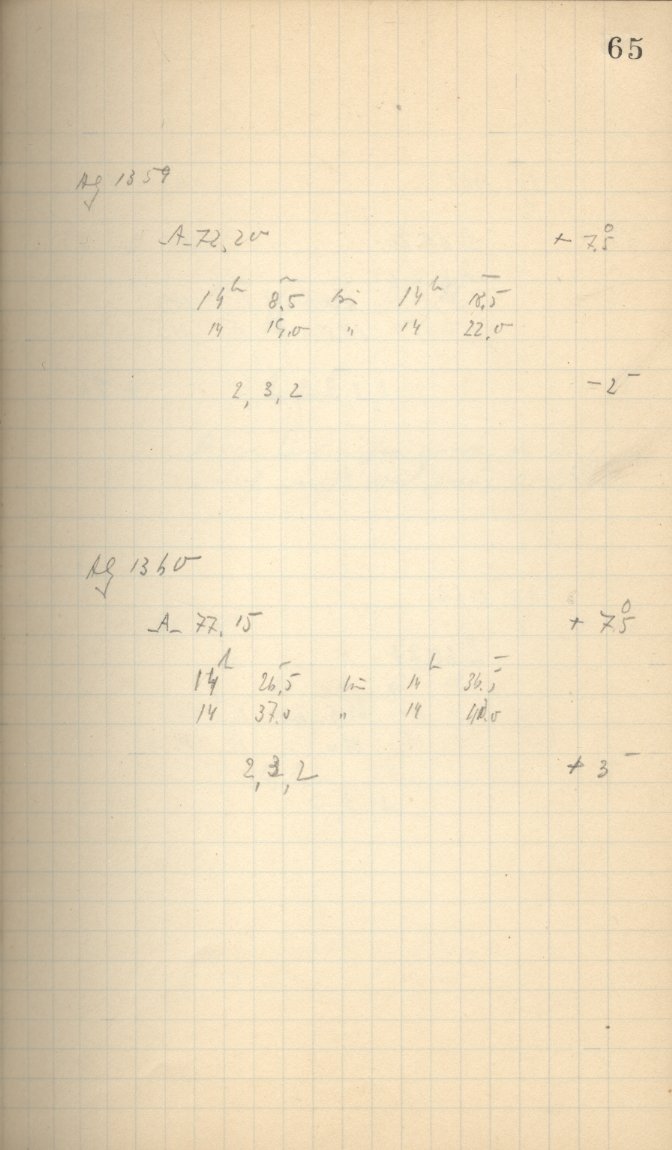 65
Ag 1359
A_ 72, 20 + 7.5°
14h 8,5m bis 14h 18,5m
14 19,0 " 14 22,0
2, 3, 2 -2m
Ag 1360
A_ 77, 15 + 7.5°
14h 26,5m bis 14h 36,5m
14 37,0 " 14 40,0
2, 3, 2 + 3m